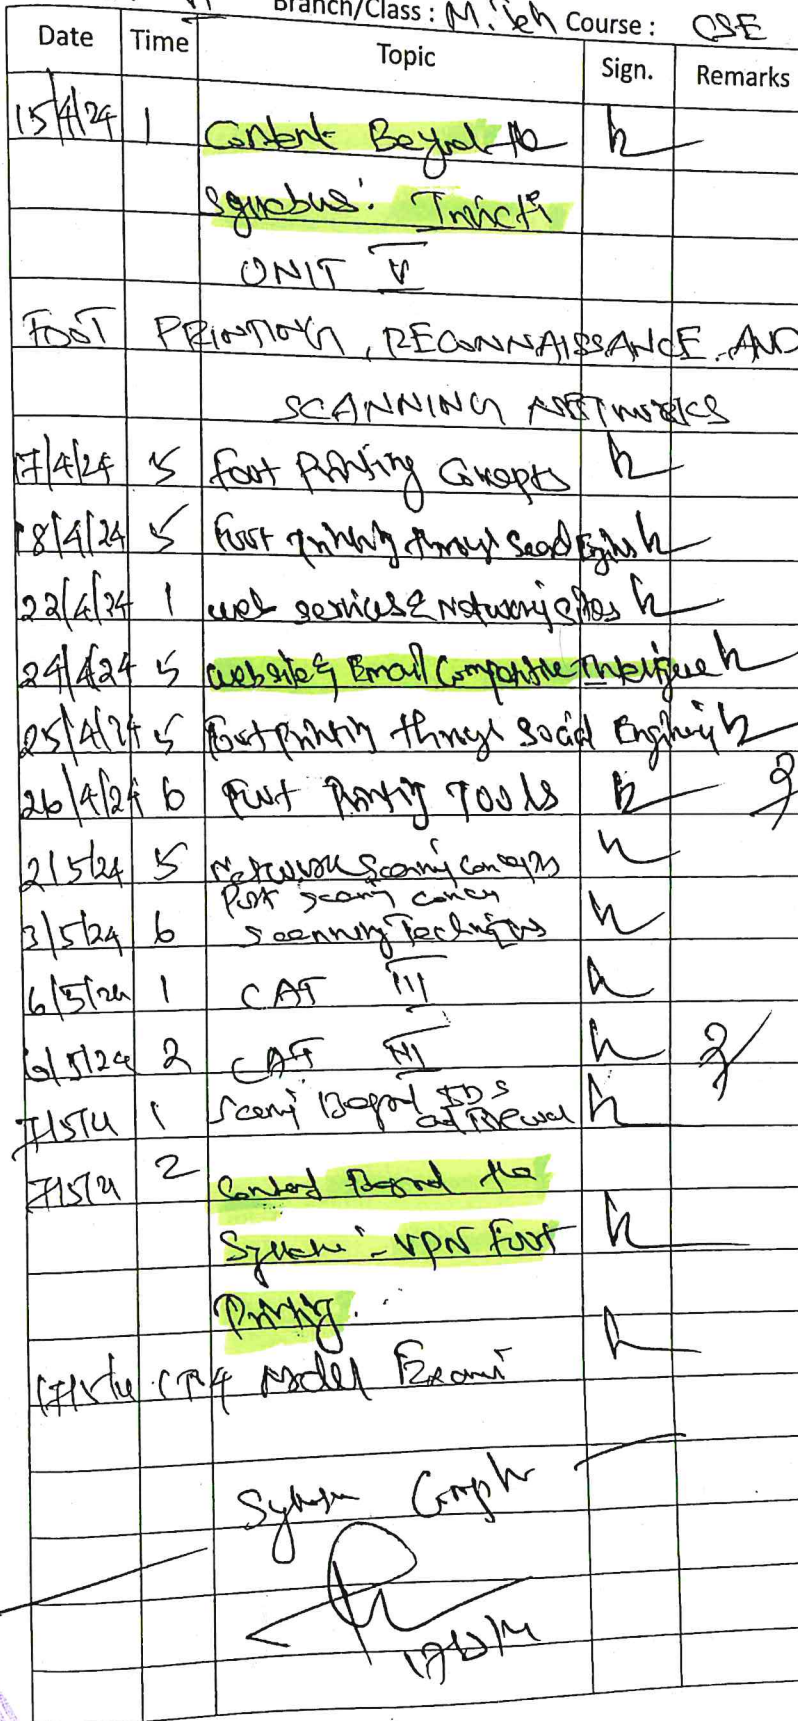 Branch/Class : M.Teh Course : CSE
Date Time Topic Sign. Remarks
15/4/24 1 Content Beyond the
UNIT V
FOOT PRINTING, RECONNAISSANCE AND
SCANNING NETWORKS
17/4/24 5 Foot Printing Concepts
18/4/24 5 Foot Printing through Search Engins
22/4/24 1 web services & Networking sites
24/4/24 5 website & Email Competitive Intelligence
25/4/24 5 Foot printing through Social Engineering
26/4/24 6 Foot Printing Tools
2/5/24 5 Network Scanning concepts
Port scanning
3/5/24 6 Scanning Techniques
6/5/24 1 CAT III
6/5/24 2 CAT III
1 Scanning Beyond IDS
and Firewall
2 Content Beyond the
VPN Foot
Printing.
Model Exam